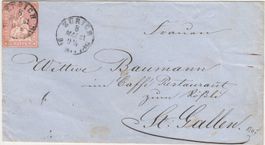 ZÜRICH
Frauen
Wittwe Baumann
im Caffé Restaurant
zum Rößli
St. Gallen